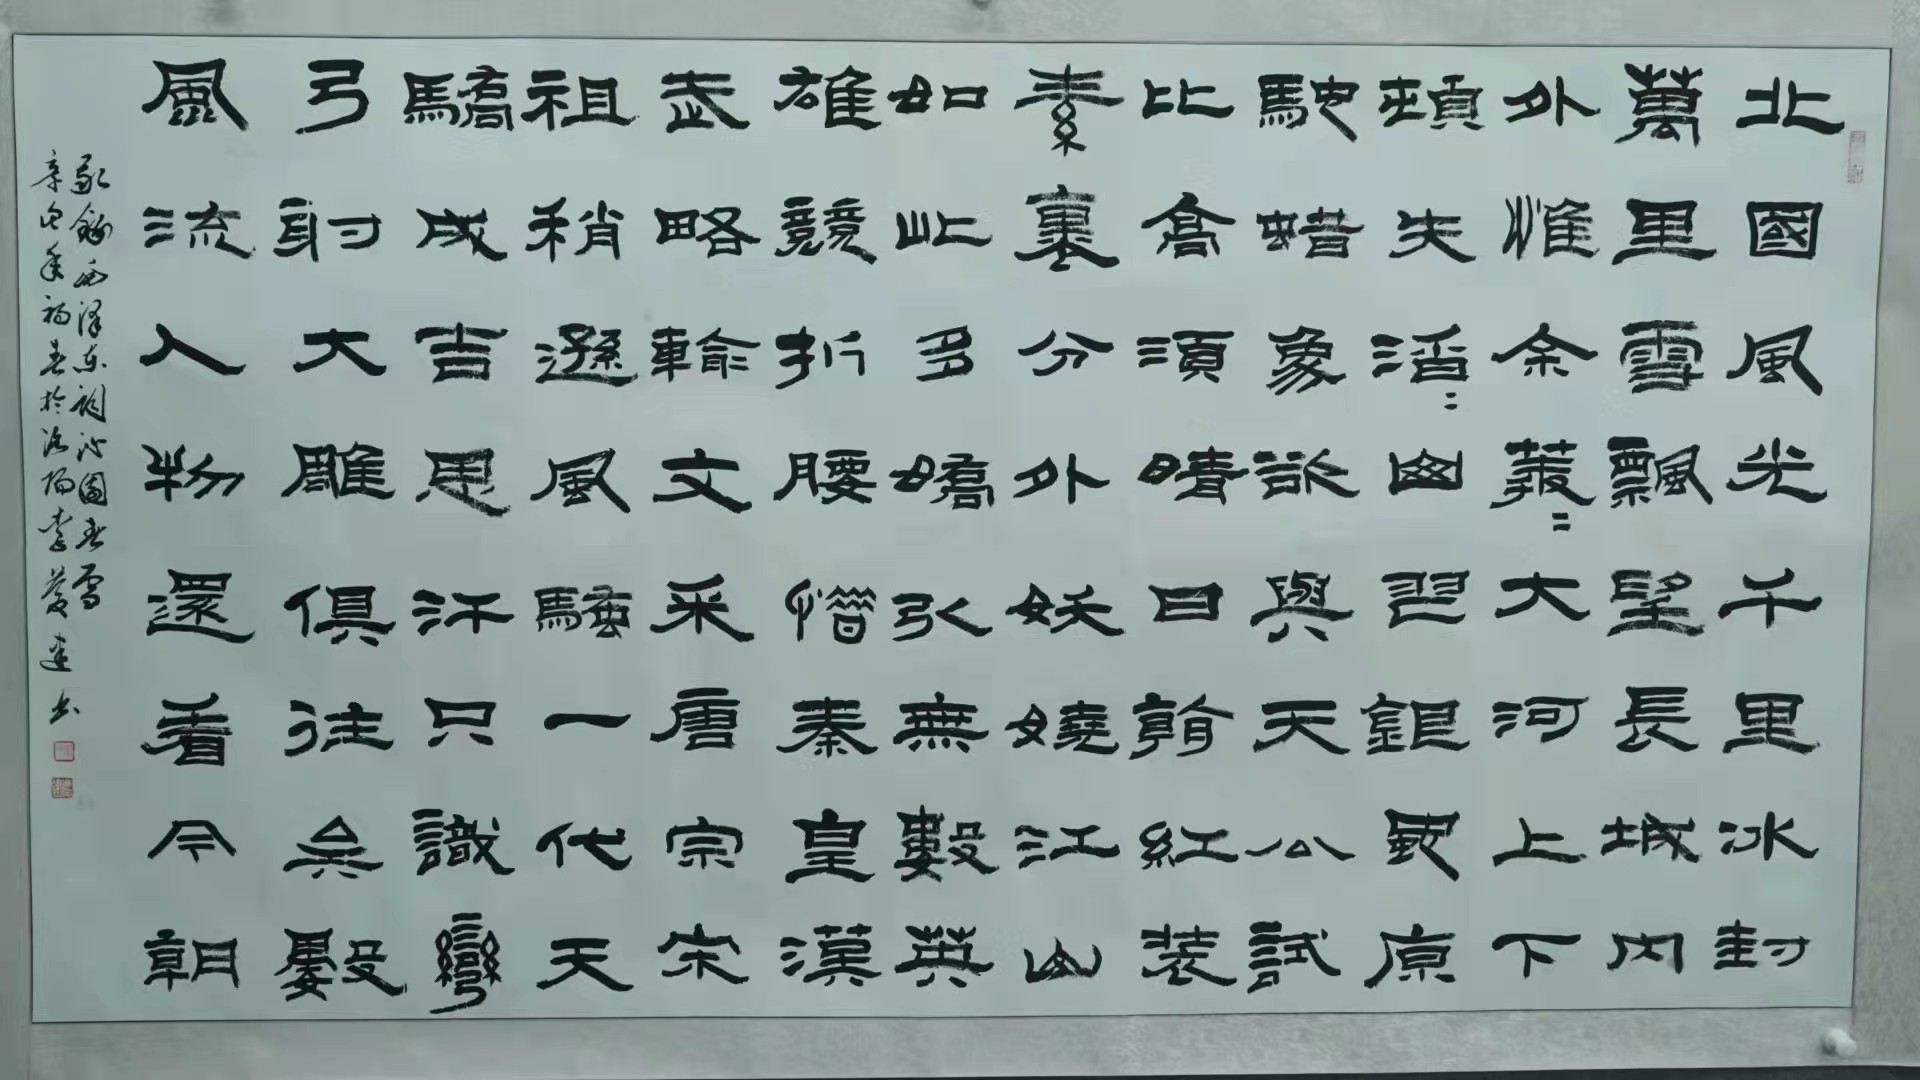 北國風光千里冰封
萬里雪飄望長城内
外惟余莽〻大河上下
頓失滔〻山舞銀蛇原
馳蜡象欲與天公試
比高須晴日看紅装
素裹分外妖嬈江山
如此多嬌引無數英
雄競折腰惜秦皇漢
武略輸文采唐宗宋
祖稍遜風騷一代天
驕成吉思汗只識彎
弓射大雕俱往矣數
風流人物還看今朝
敬錄毛澤东詞沁園春雪
年初春於洛陽李書